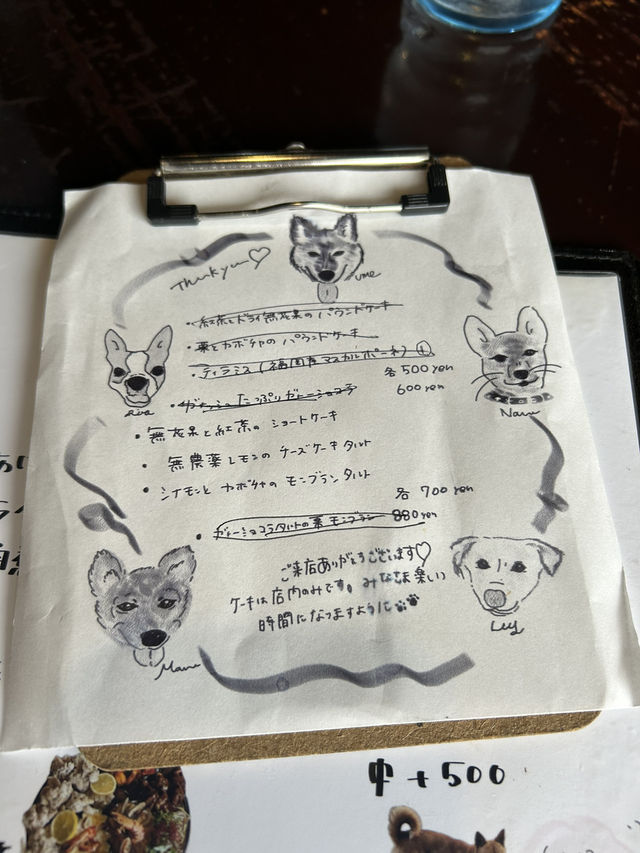 Thank you♡
ume
・紅茶とドライ無花果のパウンドケーキ
・栗とカボチャのパウンドケーキ
・ティラミス(福岡産マスカルポーネ)
各500yen
・ガナッシュたっぷりガトーショコラ
600yen
・無花果と紅茶のショートケーキ
・無農薬レモンのチーズケーキタルト
・シナモンとカボチャのモンブランタルト
各 700yen
・ガトーショコラタルトの栗モンブラン 880yen
ご来店ありがとうございます♡
ケーキは店内のみです。みなさま楽しい
時間になりますように
Nana
Luy
中+500